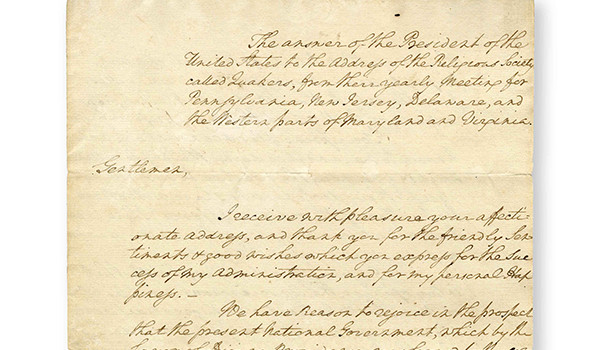 The answer of the President of the
United States to the Address of the Religious Society
called Quakers, from their yearly Meeting for
Pennsylvania, New Jersey, Delaware, and
the Western parts of Maryland and Virginia.
Gentlemen,
I receive with pleasure your affecti-
onate address, and thank you for the friendly Sen-
timents & good wishes which you express for the Suc-
cess of my Administration, and for my personal Hap-
piness. —
We have Reason to rejoice in the prospect
that the present National Government, which by the